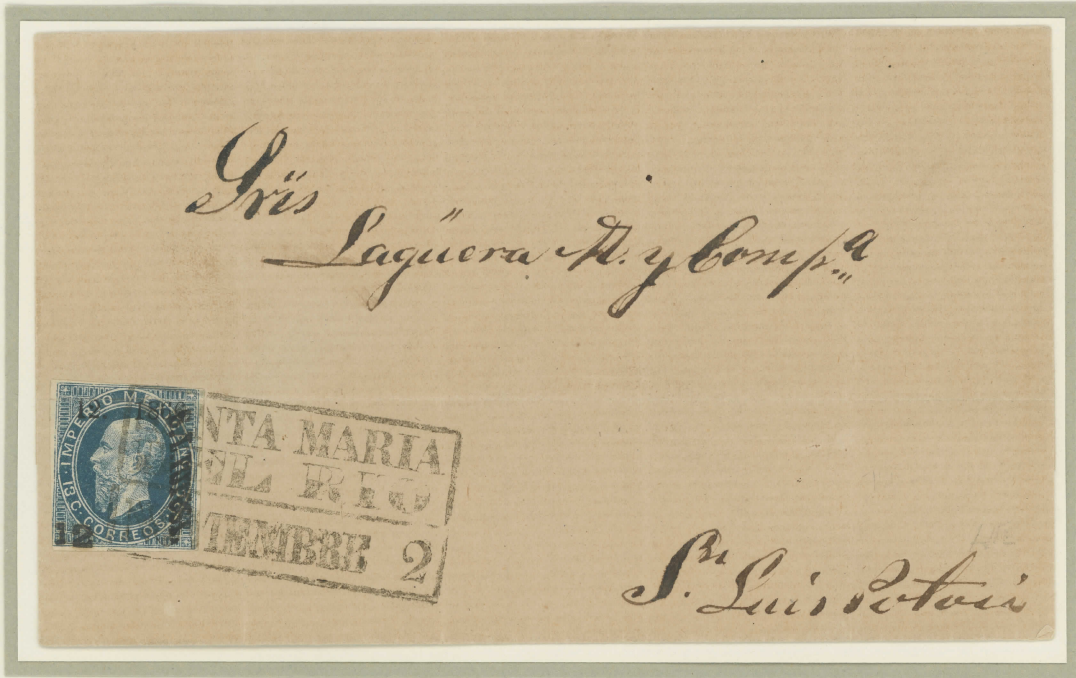 Srïs
Lagüera M. y Comp.ª
IMPERIO MEXICANO
13 C. CORREOS
12
NTA MARIA
EL RIO
TIEMBRE 2
Sn. Luis Potosi